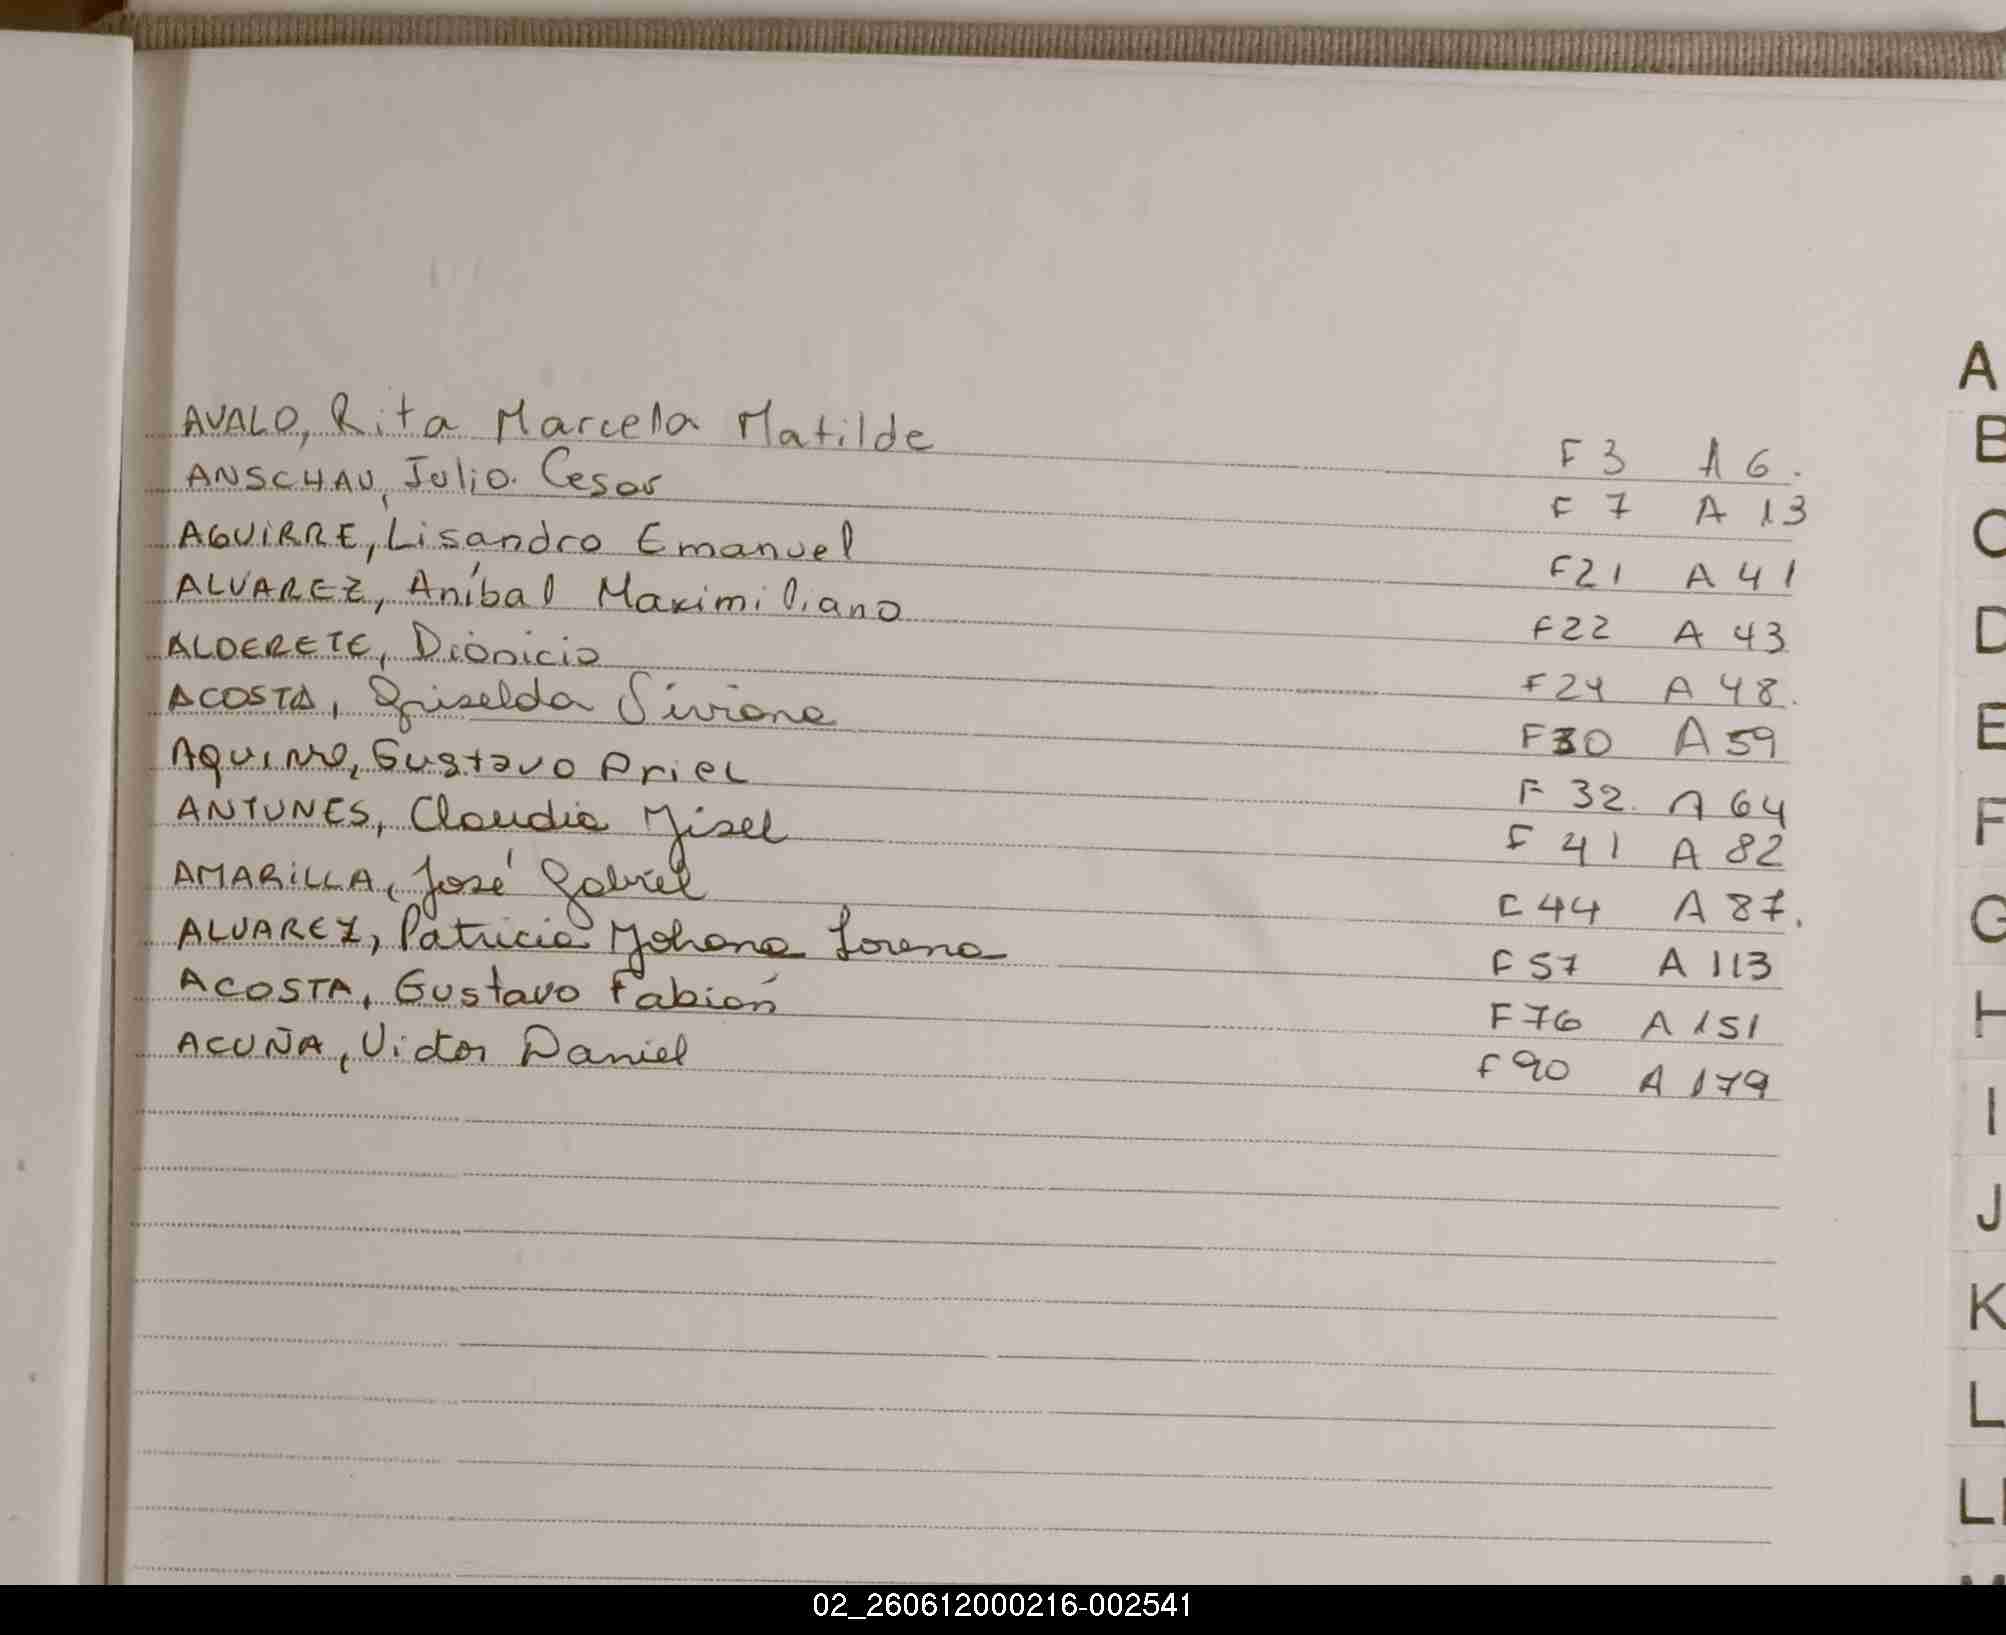 AVALO, Rita Marcela Matilde F 3 A 6.
ANSCHAU, Julio Cesar F 7 A 13
AGUIRRE, Lisandro Emanuel F21 A 41
ALVAREZ, Aníbal Maximiliano F22 A 43
ALDERETE, Dionicio F24 A 48.
ACOSTA, Griselda Viviana F30 A 59
AQUINO, Gustavo Ariel F 32 A 64
ANTUNES, Claudia Misel F 41 A 82
AMARILLA, José Gabriel F 44 A 87.
ALVAREZ, Patricia Yohana Lorena F 57 A 113
ACOSTA, Gustavo Fabián F 76 A 151
ACUÑA, Victor Daniel F 90 A 179
A
B
C
D
E
F
G
H
I
J
K
L
LL
02_260612000216-002541